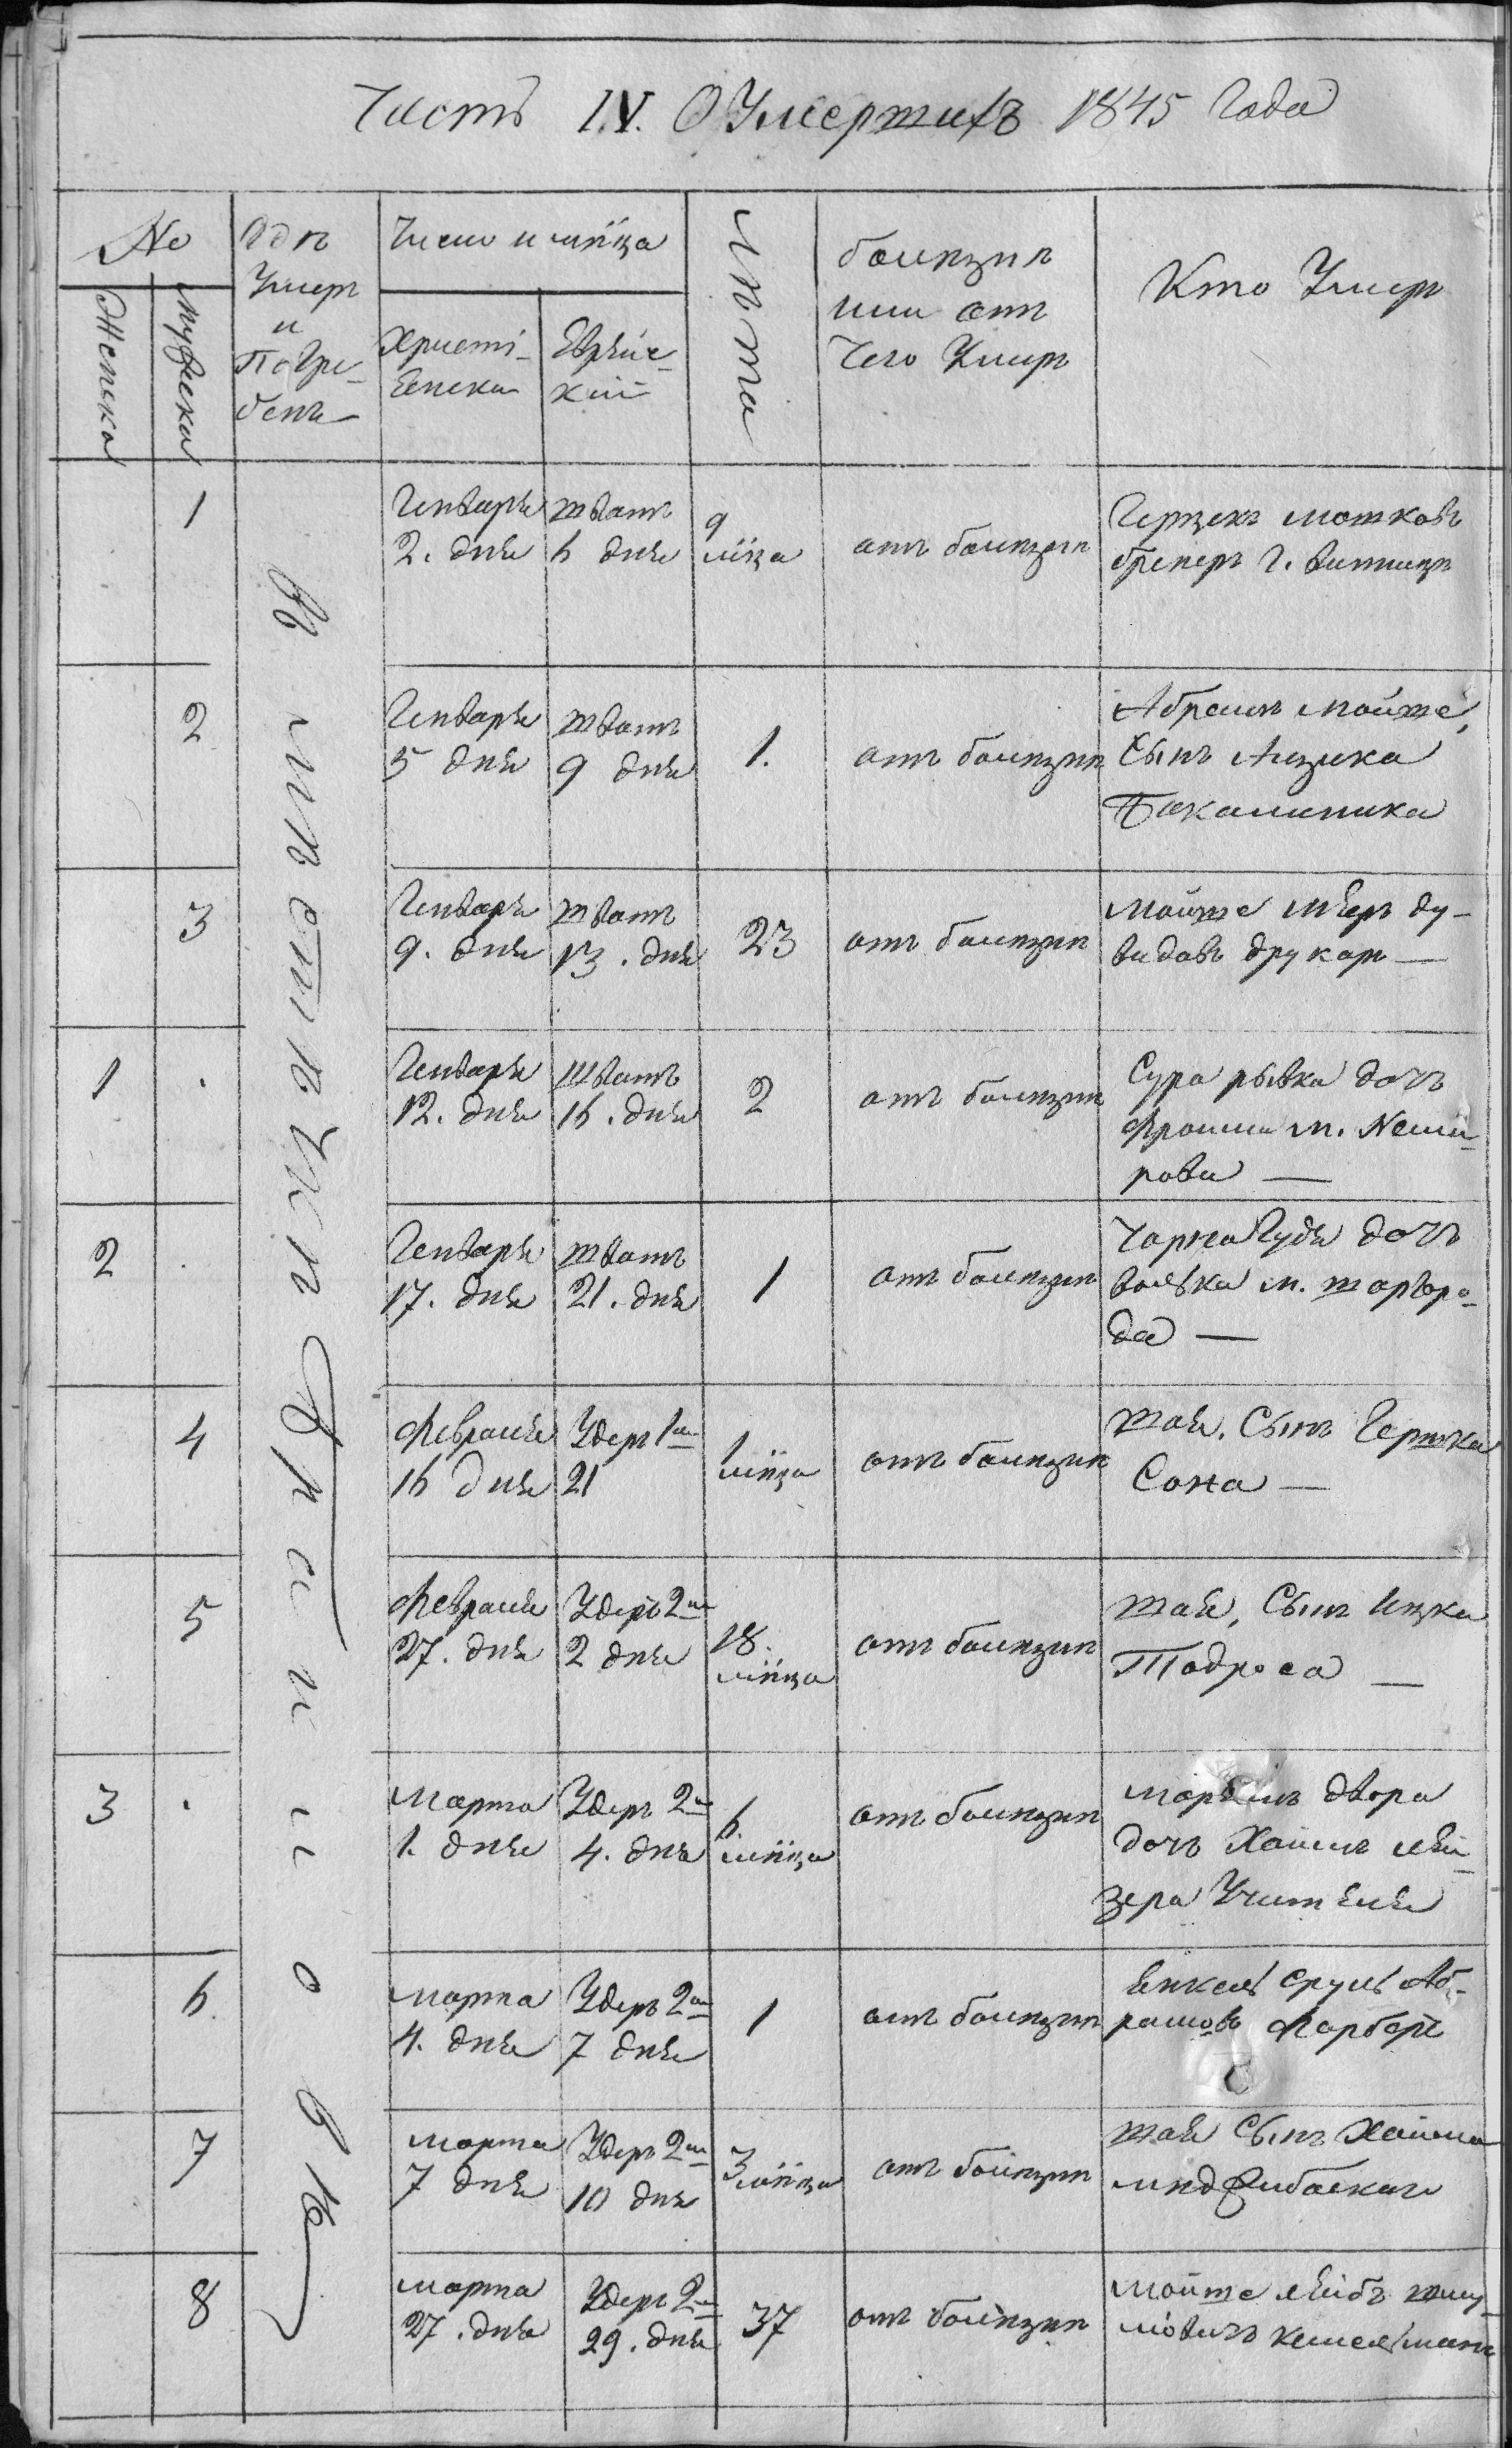 Часть IV. О Умершихъ 1845 Года
№
Женска
Мужеска
Где
Умеръ
и
Погре-
бенъ
Число и мѣсяца
Христі-
Енска
Еврейс-
кай
Лѣта
болѣзнь
или отъ
Чего Умеръ
Кто Умеръ
1
Генваря
2. дня
шватъ
6 дня
9
мѣца
отъ болѣзни
Герщекъ мошковъ
бренеръ Г. Винницы
2
Генваря
5 дня
шватъ
9 дня
1.
отъ болѣзни
Абрамъ мойше,
Сынъ Аизика
Бакалиника
3
Генваря
9. дня
шватъ
13. дня
23
отъ болѣзни
мойше мѣеръ ду-
видовъ друкаръ —
1
Генваря
12. дня
шватъ
16. дня
2
отъ болѣзни
Сура рывка дочъ
Фроима м. Неми-
рова —
2
Генваря
17. дня
шватъ
21. дня
1
отъ болѣзни
Чарна Гудя дочъ
волька м. шаргоро-
да —
4
Февраля
16 дня
Удеръ 1й
21
1
мѣца
отъ болѣзни
шая, Сынъ Гершка
Сона —
5
Февраля
27. дня
Удеръ 2й
2 дня
18.
мѣца
отъ болѣзни
шая, Сынъ Ицка
Тодроса —
3
марта
1. дня
Удеръ 2й
4. дня
6
мѣца
отъ болѣзни
двора
дочъ Хаимъ лей-
зера Учителя
6
марта
4. дня
Удеръ 2й
7 дня
1
отъ болѣзни
Янкель сруль Аб-
рамовъ Фарберъ
7
марта
7 дня
Удеръ 2й
10 дня
3
мѣца
отъ болѣзни
шая Сынъ Хаима
8
марта
27. дня
Удеръ 2й
29. дня
37
отъ болѣзни
мойше лейбъ шму-
лёвичъ кешельманъ